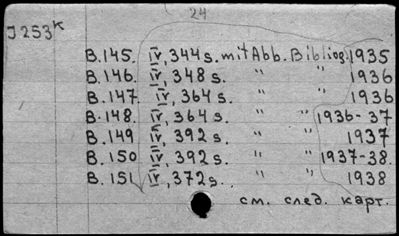 24
J 253ᴷ
B.145. IV, 344 s. mit Abb. Bibliog. 1935
B.146. IV, 348 s. " " 1936
B.147. IV, 364 s. " " 1936
B.148. IV, 364 s. " " 1936-37
B.149 IV, 392 s. " " 1937
B.150 IV, 392 s. " " 1937-38.
B.151 IV, 372 s. " " 1938
см. след. карт.